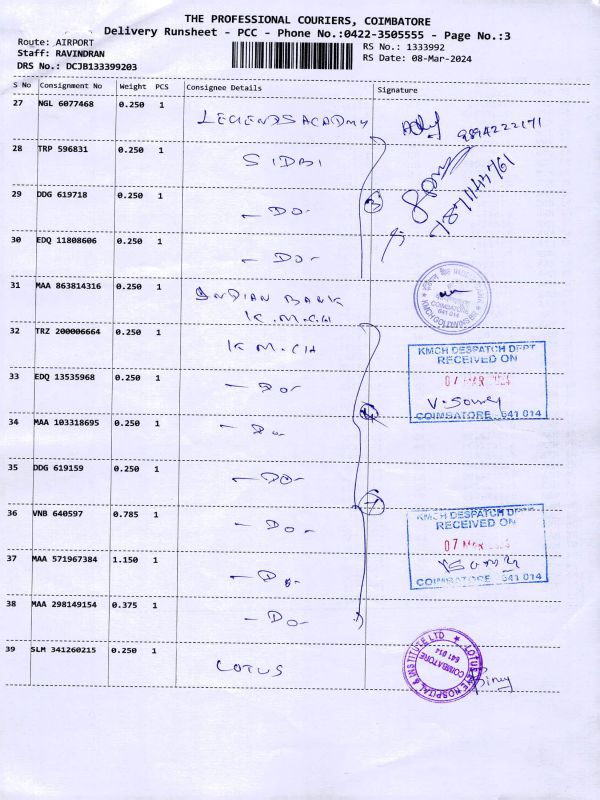 THE PROFESSIONAL COURIERS, COIMBATORE
Delivery Runsheet - PCC - Phone No.:0422-3505555 - Page No.:3
Route: AIRPORT
Staff: RAVINDRAN
DRS No.: DCJB133399203
RS No.: 1333992
RS Date: 08-Mar-2024
S No Consignment No Weight PCS Consignee Details Signature
27 NGL 6077468 0.250 1 LEGENDS ACADMY 9894222171
28 TRP 596831 0.250 1 SIDBI
29 DDG 619718 0.250 1 - DO - 3
30 EDQ 11808606 0.250 1 - DO -
31 MAA 863814316 0.250 1 INDIAN BANK
K.M.C.H
COIMBATORE
641 014
32 TRZ 200006664 0.250 1 K.M.CH
KMCH DESPATCH DEPT
RECEIVED ON
07 MAR
COIMBATORE 641 014
33 EDQ 13535968 0.250 1 - DO -
34 MAA 103318695 0.250 1 - DO -
35 DDG 619159 0.250 1 - DO -
36 VNB 640597 0.785 1 - DO -
KMCH DESPATCH DEPT
RECEIVED ON
07 MAR
COIMBATORE 641 014
37 MAA 571967384 1.150 1 - DO -
38 MAA 298149154 0.375 1 - DO -
39 SLM 341260215 0.250 1 LOTUS
LOTUS EYE HOSPITAL & INSTITUTE LTD
COIMBATORE
641 014